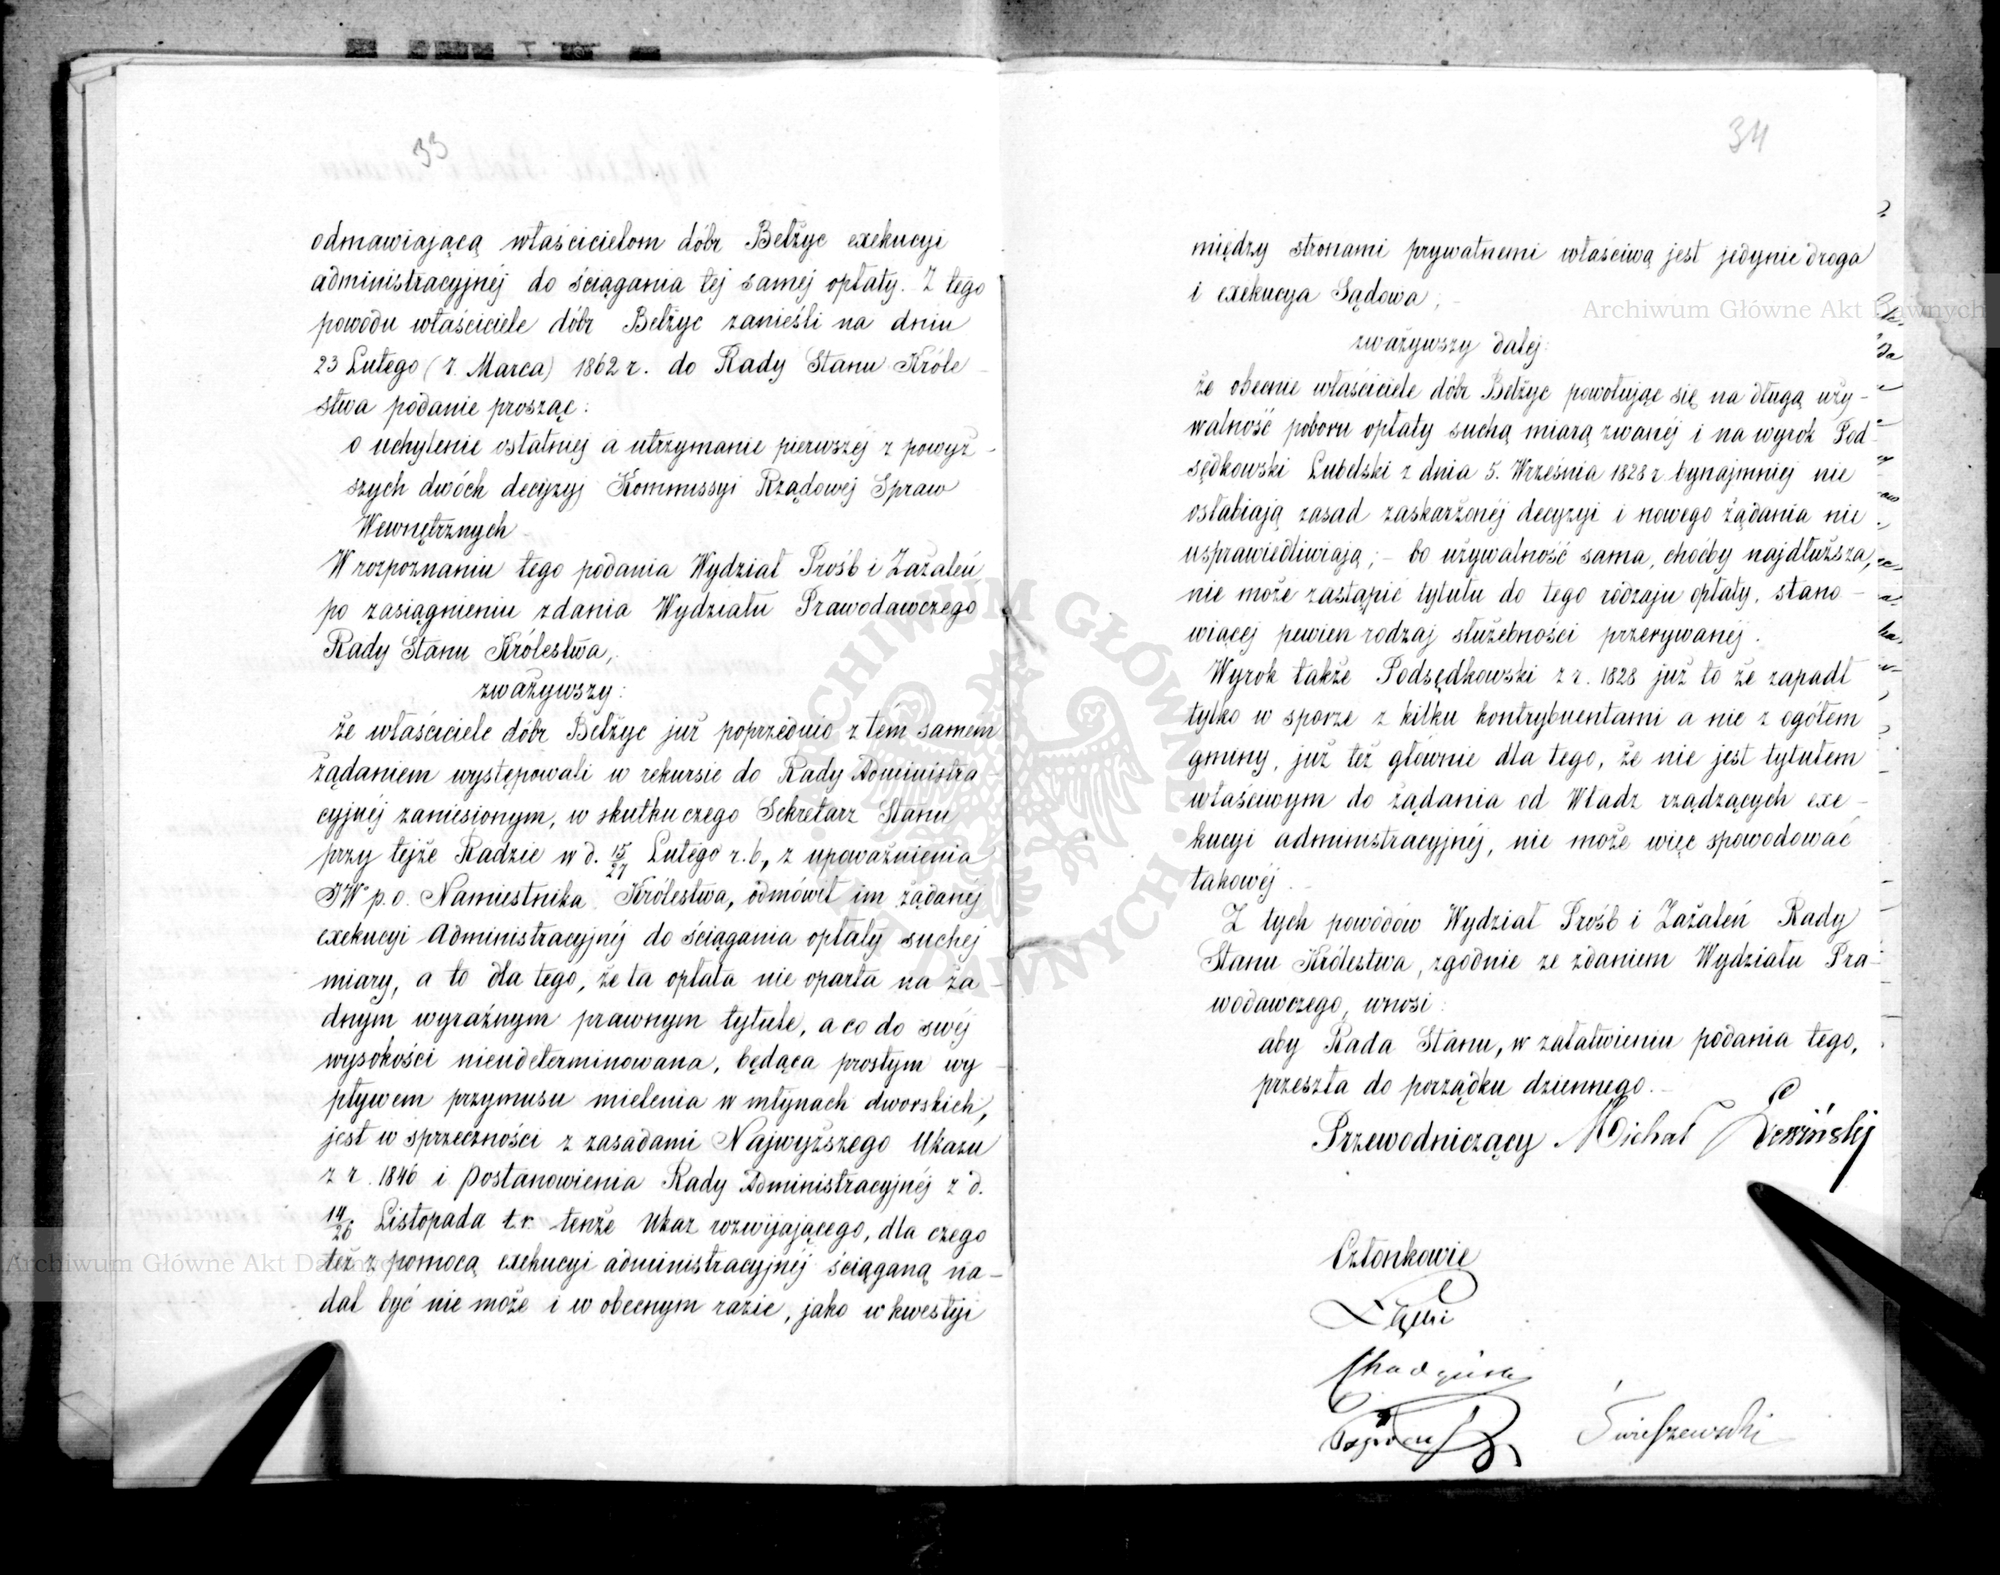 33
odmawiającą właścicielom dóbr Bełżyc exekucyi
administracyjnéj do ściągania téj saméj opłaty. Z tego
powodu właściciele dóbr Bełżyc zanieśli na dniu
23 Lutego (7. Marca) 1862 r. do Rady Stanu Króle
stwa podanie prosząc:
o uchylenie ostatniej a utrzymanie pierwszéj z powyż-
szych dwóch decyzyj Kommissyi Rządowéj Spraw
Wewnętrznych
W rozpoznaniu tego podania Wydział Próśb i Zażaleń
po zasiągnieniu zdania Wydziału Prawodawczego
Rady Stanu Królestwa,
zważywszy:
że właściciele dóbr Bełżyc już poprzednio z tém samem
żądaniem występowali w rekursie do Rady Administra
cyjnéj zaniesionym, w skutku czego Sekretarz Stanu
przy tejże Radzie w d. 15/27 Lutego r. b., z upoważnienia
JWo p.o. Namiestnika Królestwa, odmówił im żądanéj
exekucyi Administracyjnéj do ściągania opłaty suchej
miary, a to dla tego, że ta opłata nie oparta na ża-
dnym wyraźnym prawnym tytule, a co do swéj
wysokości nieudeterminowana, będąca prostym wy
pływem przymusu mielenia w młynach dworskich,
jest w sprzeczności z zasadami Najwyższego Ukazu
z r. 1846 i Postanowienia Rady Administracyjnéj z d.
14/26 Listopada t.r. tenże Ukaz rozwijającego, dla czego
też z pomocą exekucyi administracyjnéj ściąganą na-
dal być nie może i w obecnym razie, jako w kwestyi
34
między stronami prywatnemi właściwą jest jedynie droga
i exekucya Sądowa;
zważywszy daléj:
że obecnie właściciele dóbr Bełżyc powołując się na długą uży-
walność poboru opłaty suchą miarą zwanéj i na wyrok Pod-
sędkowski Lubelski z dnia 5. Września 1828 r. bynajmniej nie
osłabiają zasad zaskarżonéj decyzyi i nowego żądania nie
usprawiedliwiają; – bo używalność sama, choćby najdłuższa,
nie może zastąpić tytułu do tego rodzaju opłaty, stano-
wiącej pewien rodzaj służebności przerywanéj.
Wyrok także Podsędkowski z r. 1828 już to że zapadł
tylko w sporze z kilku kontrybuentami a nie z ogółem
gminy, już też głównie dla tego, że nie jest tytułem
właściwym do żądania od Władz rządzących exe-
kucyi administracyjnéj, nie może więc spowodować
takowéj.
Z tych powodów Wydział Próśb i Zażaleń Rady
Stanu Królestwa, zgodnie ze zdaniem Wydziału Pra-
wodawczego, wnosi:
aby Rada Stanu, w załatwieniu podania tego,
przeszła do porządku dziennego.
Przewodniczący Michał
Członkowie
Archiwum Główne Akt Dawnych
Archiwum Główne Akt Dawnych
ARCHIWUM GŁÓWNE AKT DAWNYCH